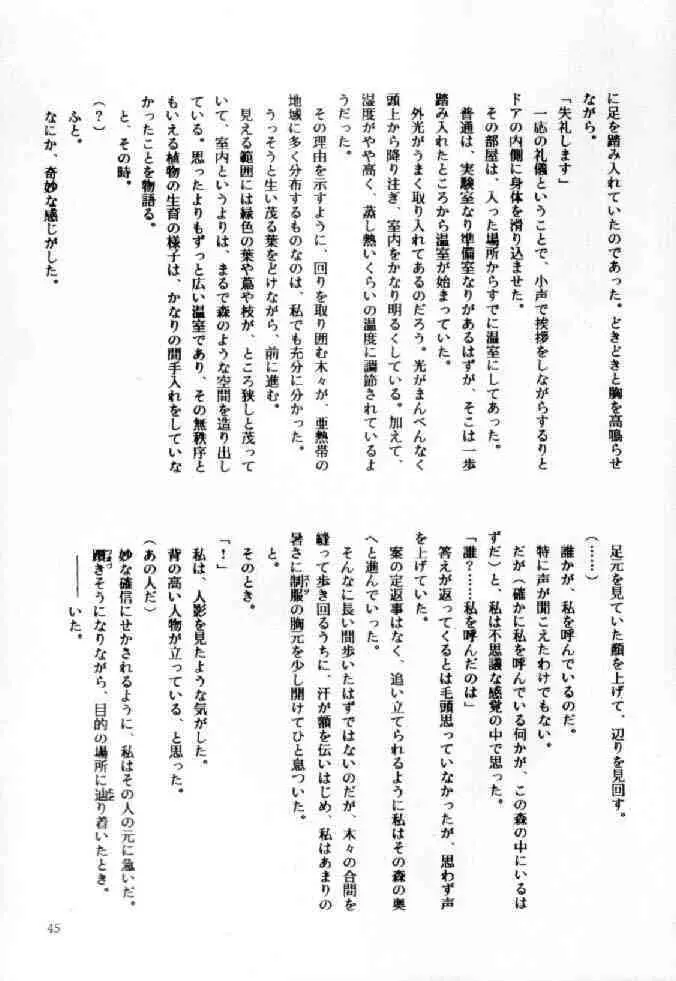 に足を踏み入れていたのであった。どきどきと胸を高鳴らせ
ながら。
「失礼します」
一応の礼儀ということで、小声で挨拶をしながらするりと
ドアの内側に身体を滑り込ませた。
その部屋は、入った場所からすでに温室にしてあった。
普通は、実験室なり準備室なりがあるはずが、そこは一歩
踏み入れたところから温室が始まっていた。
外光がうまく取り入れてあるのだろう。光がまんべんなく
頭上から降り注ぎ、室内をかなり明るくしている。加えて、
湿度がやや高く、蒸し熱いくらいの温度に調節されているよ
うだった。
その理由を示すように、回りを取り囲む木々が、亜熱帯の
地域に多く分布するものなのは、私でも充分に分かった。
うっそうと生い茂る葉をどけながら、前に進む。
見える範囲には緑色の葉や蔦や枝が、ところ狭しと茂って
いて、室内というよりは、まるで森のような空間を造り出し
ている。思ったよりもずっと広い温室であり、その無秩序と
もいえる植物の生育の様子は、かなりの間手入れをしていな
かったことを物語る。
と、その時。
(?)
ふと。
なにか、奇妙な感じがした。
足元を見ていた顔を上げて、辺りを見回す。
(……)
誰かが、私を呼んでいるのだ。
特に声が聞こえたわけでもない。
だが(確かに私を呼んでいる何かが、この森の中にいるは
ずだ)と、私は不思議な感覚の中で思った。
「誰?……私を呼んだのは」
答えが返ってくるとは毛頭思っていなかったが、思わず声
を上げていた。
案の定返事はなく、追い立てられるように私はその森の奥
へと進んでいった。
そんなに長い間歩いたはずではないのだが、木々の合間を
縫って歩き回るうちに、汗が額を伝いはじめ、私はあまりの
暑さに制服の胸元を少し開けてひと息ついた。
と。
そのとき。
「!」
私は、人影を見たような気がした。
背の高い人物が立っている、と思った。
(あの人だ)
妙な確信にせかされるように、私はその人の元に急いだ。
躓きそうになりながら、目的の場所に辿り着いたとき。
――いた。
45